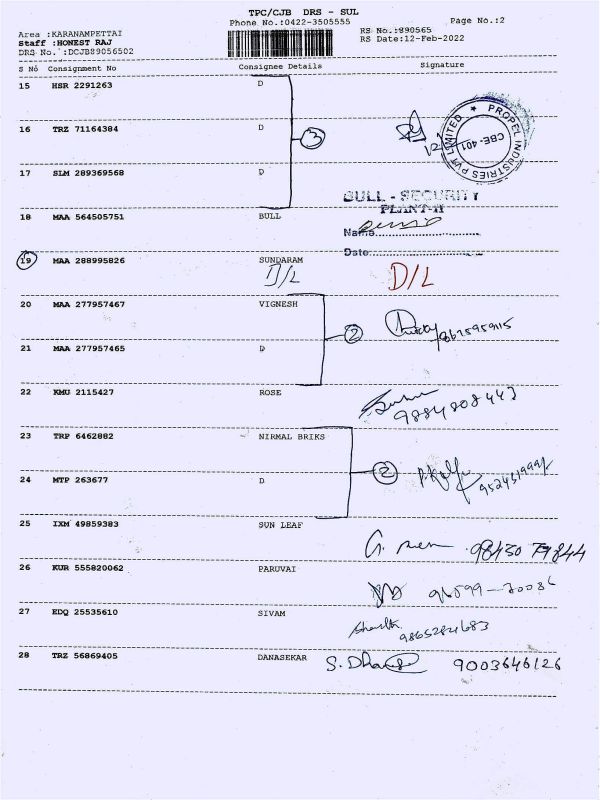 TPC/CJB DRS - SUL
Phone No.:0422-3505555 Page No.:2
Area :KARANAMPETTAI RS No.:890565
Staff :HONEST RAJ RS Date:12-Feb-2022
DRS No. :DCJB89056502
S No Consignment No Consignee Details Signature
15 HSR 2291263 D
16 TRZ 71164384 D 3
PROPEL INDUSTRIES PVT LIMITED ★
CBE-401
17 SLM 289369568 D
BULL - SECURITY
PLANT-II
18 MAA 564505751 BULL
Name
Date
19 MAA 288995826 SUNDARAM
D/L D/L
20 MAA 277957467 VIGNESH
2
21 MAA 277957465 D
22 KMU 2115427 ROSE
9884808443
23 TRP 6462882 NIRMAL BRIKS
2
24 MTP 263677 D
25 IXM 49859383 SUN LEAF
26 KUR 555820062 PARUVAI
27 EDQ 25535610 SIVAM
28 TRZ 56869405 DANASEKAR S. 9003646126